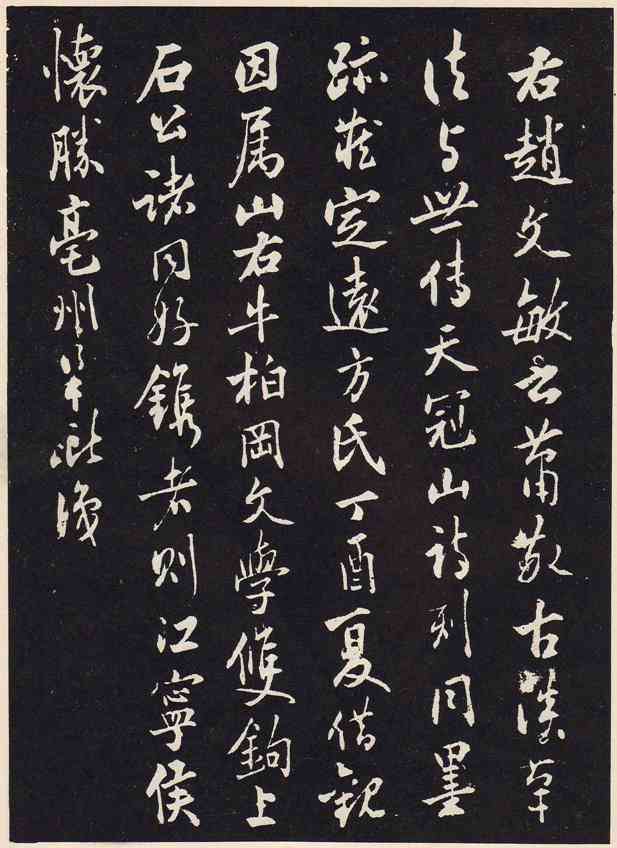 右趙文敏書蕭散古淡筆
法与世傳天冠山詩刻同墨
跡藏定遠方氏丁酉夏借觀
因属山右牛柏岡文學雙鉤上
石公諸同好鐫者則江寧侯
懷勝亳州梁巘識